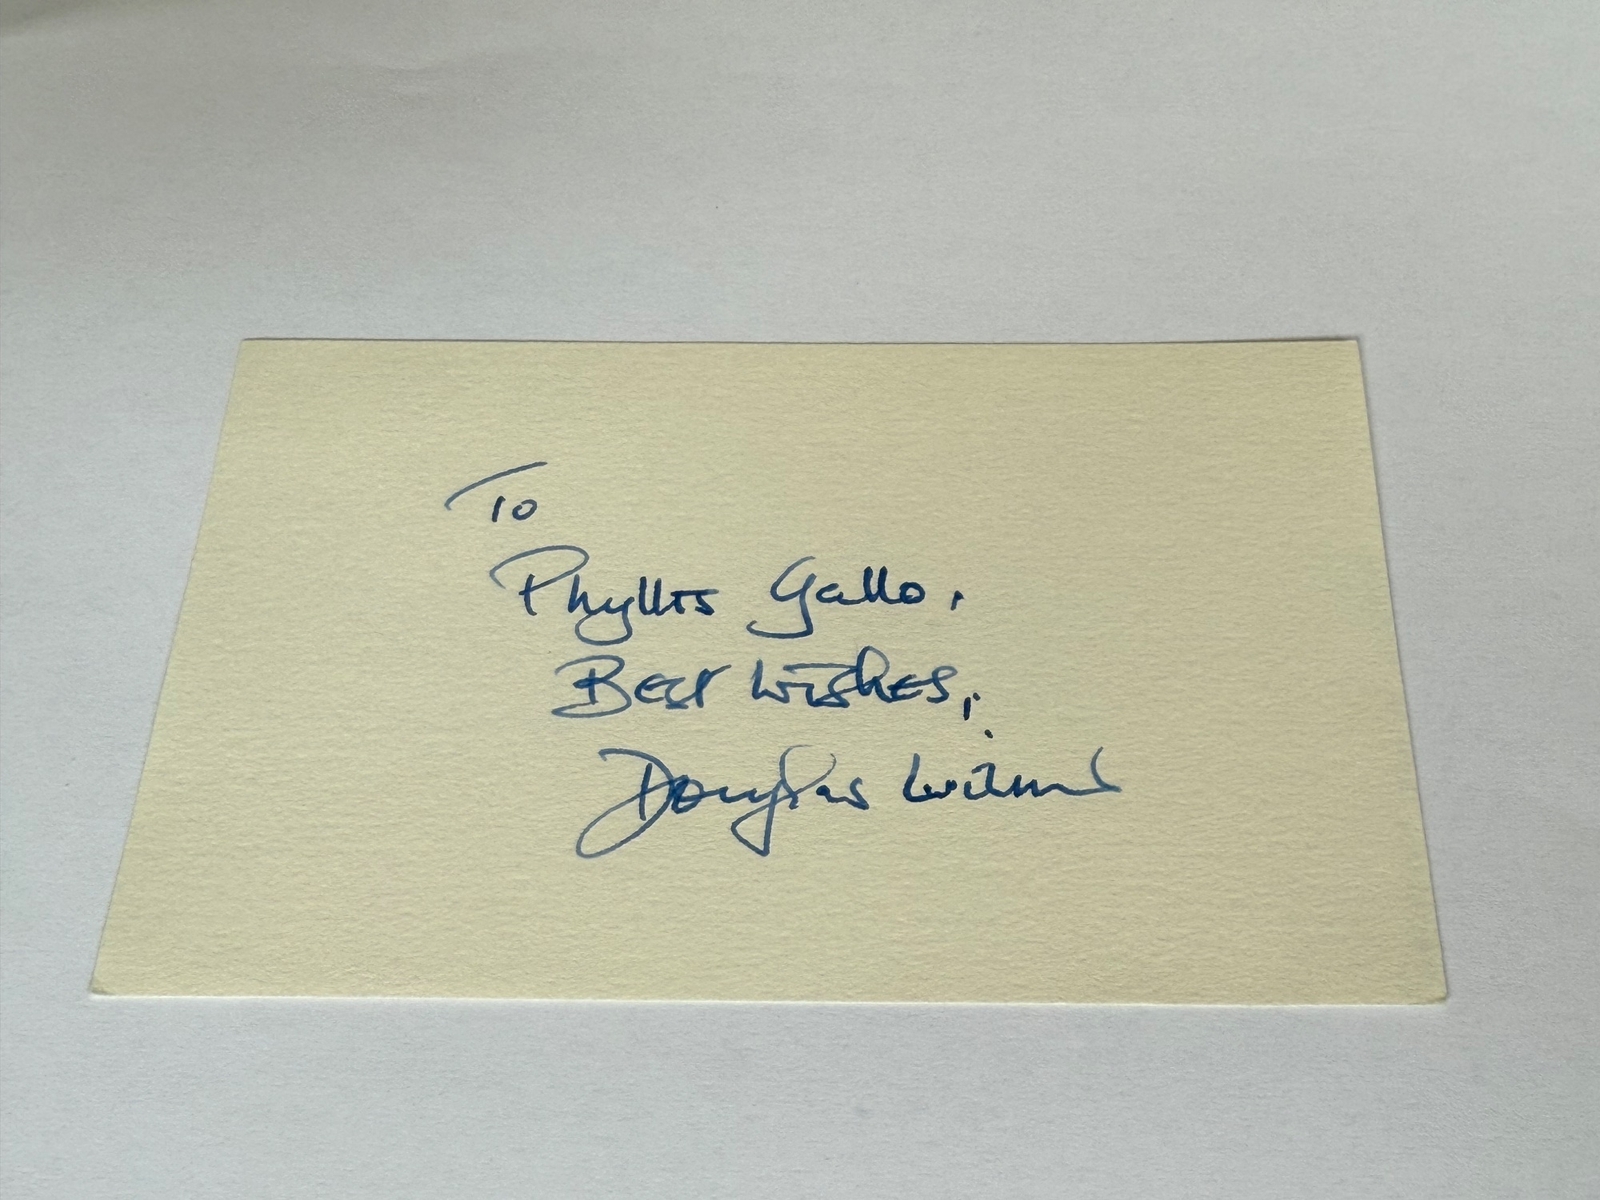 To
Phyllis Gallo,
Best Wishes,
Douglas Wilmer